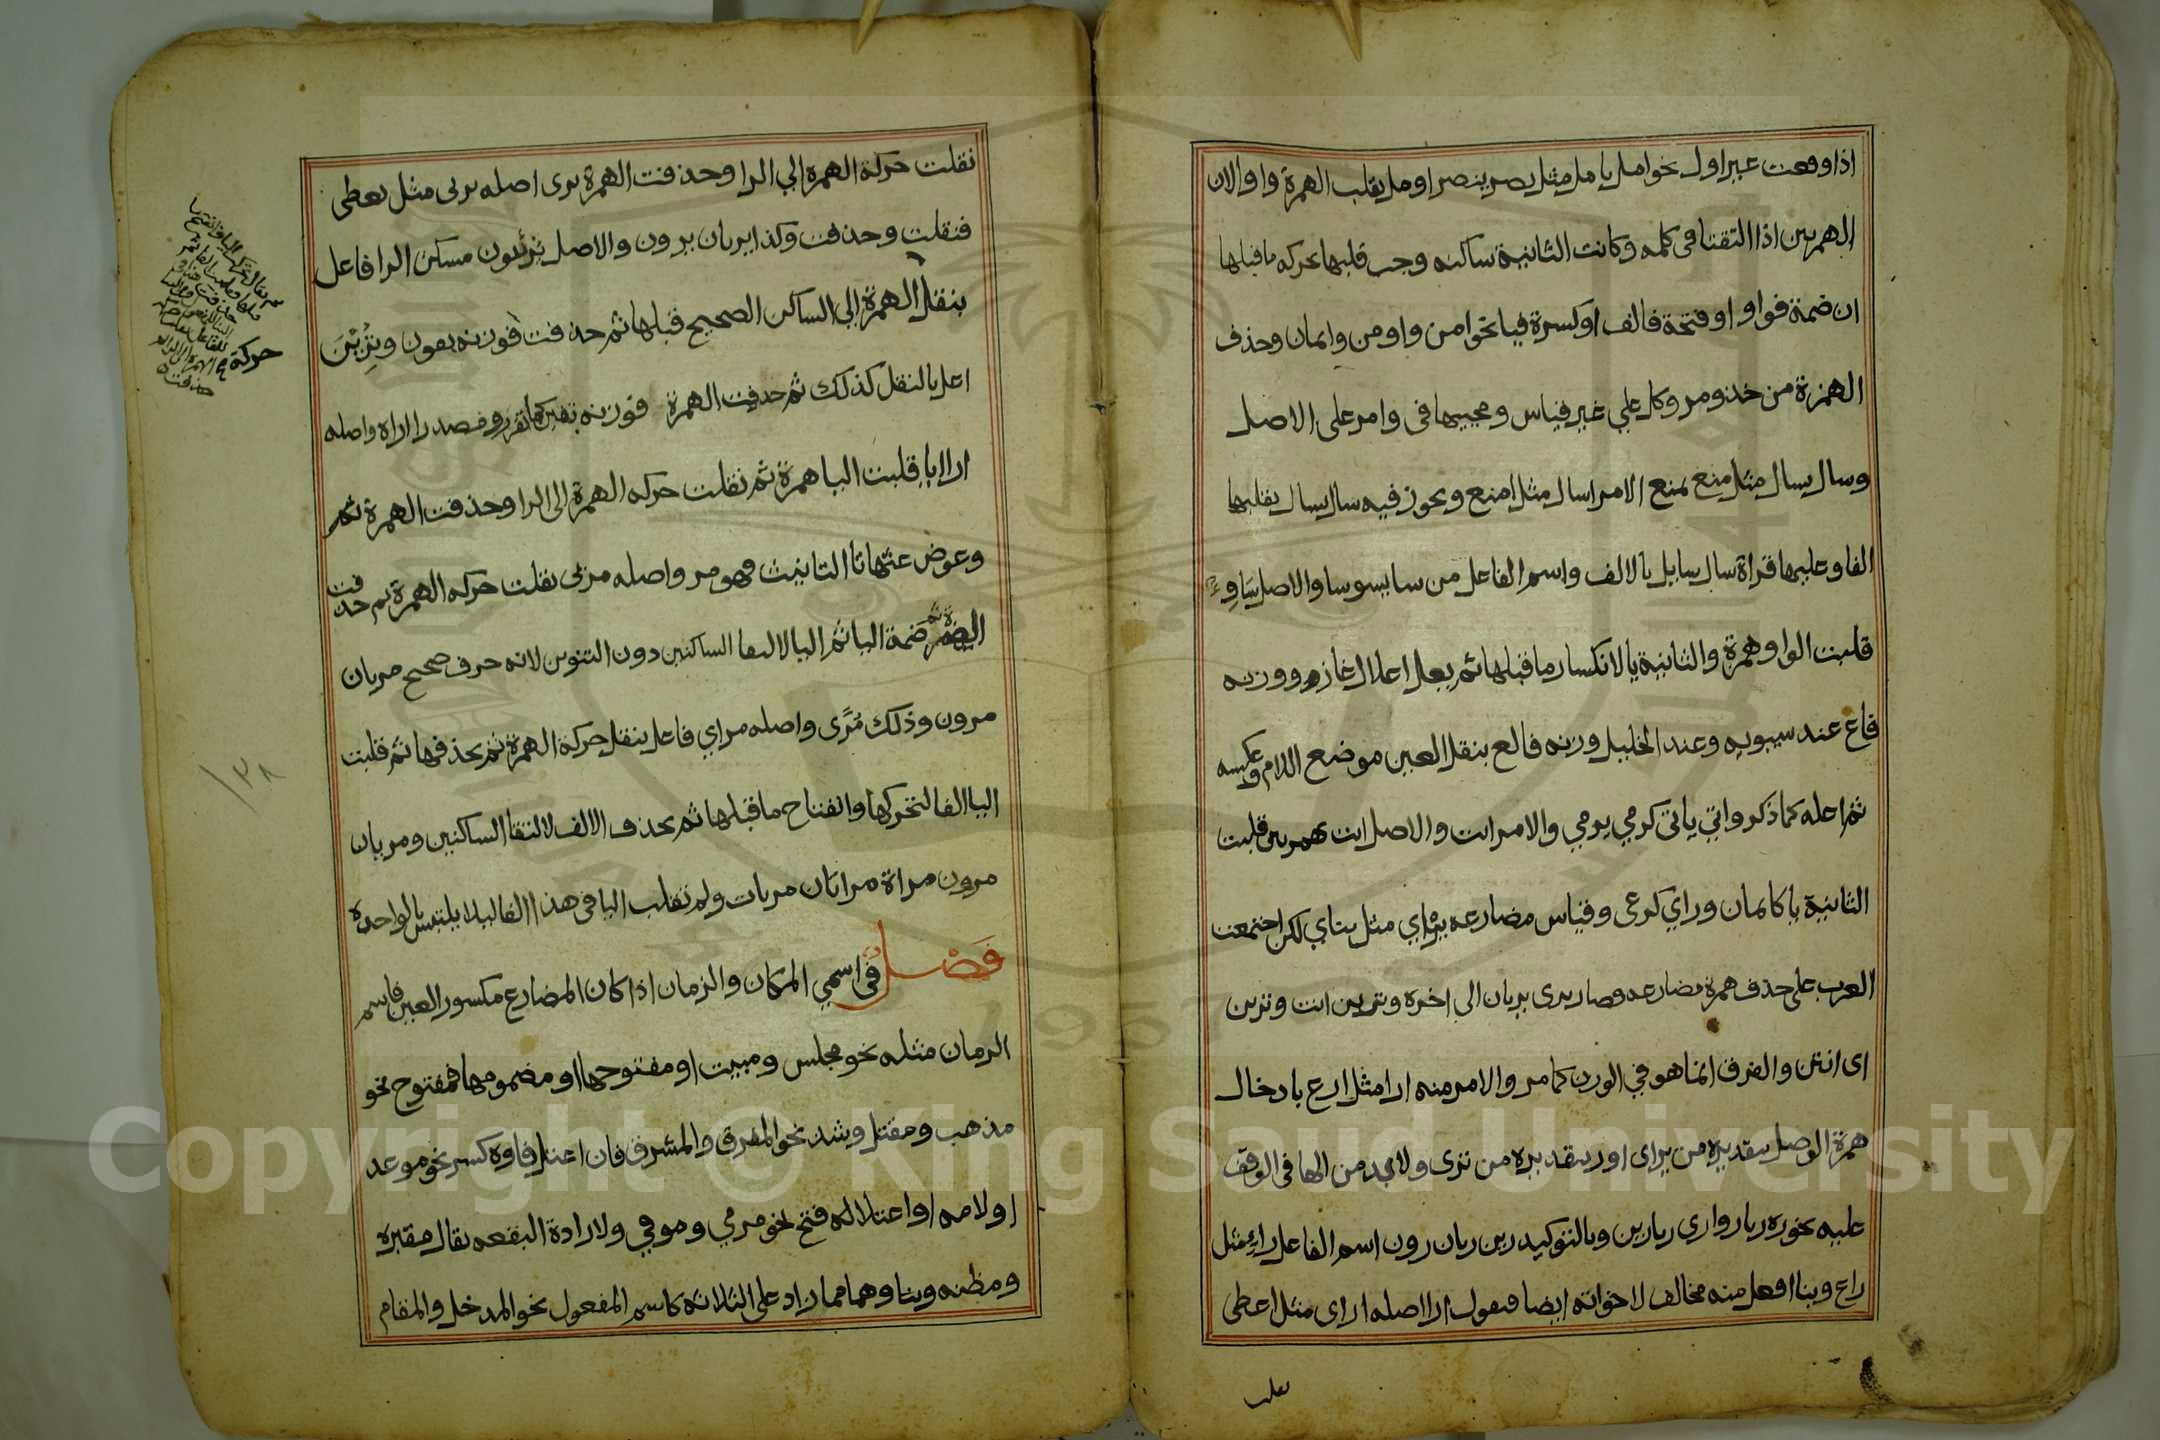 اذا وقعت غير اول نحو امل يا مل مثل نصر ينصر اومل بقلب الهمزة واوا لان
الهمزتين اذا التقتا في كلمه وكانت الثانية ساكنه وجب قلبها بحركه ما قبلها
ان ضمة فواو او فتحة فالف او كسرة فيا نحو امن واومن وايمان وحذف
الهمزة من خذ ومر وكل علي غير قياس ومجيها في وامر على الاصل
وسال يسال مثل منع يمنع الامر اسال مثل امنع ويجوز فيه سال يسال بقلبها
الفا وعليها قراة سال سايل بالالف واسم الفاعل من سا يسو سا والاصل ساوء
قلبت الواو همزة والثانية يا لانكسار ما قبلها ثم يعل اعلال غاز ووزنه
فاع عند سيبويه وعند الخليل وزنه فالع بنقل العين موضع اللام وعكسه
ثم اعله كما ذكر واتي ياتي كرمي يرمي والامر ايت والاصل ات بهمزتين قلبت
الثانية يا كايمان وراي كرعى وقياس مضارعه يراي مثل يناي لكن اجتمعت
العرب على حذف همزة مضارعه فصار يرى يريان الي اخره وترين انت وترين
اى انتن والفرق انما هو في الوزن كما مر والامر منه ارا مثل ارع بادخال
همزة الوصل بتقديره من يراى اور بتقديره من ترى ولابد من الها في الوقف
عليه نحو ره ريا روا رى ريا رين وبالتوكيد رين ريان رون اسم الفاعل راء مثل
راع وبنا افعل منه مخالف لاخواته ايضا فيقول ارا اصله اراى مثل اعطى
نقلت حركة الهمزة الي الرا وحذفت الهمزة يرى اصله يرىى مثل يعطى
فنقلت وحذفت وكذا يريان يرون والاصل يرئون مسكن الرا فاعل
بنقل الهمزة الى الساكن الصحيح قبلها ثم حذفت فوزنه يفون وترين
اعل بالنقل كذلك ثم حذفت الهمزة فوزنه تفين كما تقرر ومصدر ارا اراة واصله
ارا ايا قلبت اليا همزة ثم نقلت حركه الهمزة الى الرا وحذفت الهمزة ثم
وعوض عنها تا التانيث فهو مر واصله مرئى نقلت حركه الهمزة ثم حذفت
الهمزة ثم ضمة اليا ثم اليا لالتقا الساكنين دون التنوين لانه حرف صحيح مريان
مرون وذلك مرى واصله مراي فاعل بنقل حركة الهمزة ثم بحذفها ثم قلبت
اليا الفا لتحركها وانفتاح ما قبلها ثم بحذف الالف لالتقا الساكنين ومريان
مرون مراة مراتان مريات ولم تقلب اليا في هذا الفا ليلا يلتبس بالواحده
فصل في اسمي المكان والزمان اذا كان المضارع مكسور العين فاسم
الزمان مثله نحو مجلس ومبيت او مفتوحها او مضمومها فمفتوح نحو
مذهب ومقتل وشذ نحو المفرق والمشرق فان اعتل فاوه كسر نحو موعد
او لامه او اعتلا له فتح نحو مرمي وموقي ولارادة البقعه يقال مقبره
ومظنه وبناوهما مما زاد على الثلاثه كاسم المفعول نحو المدخل والمقام
حركة
١٣٨
Copyright © King Saud University
1957